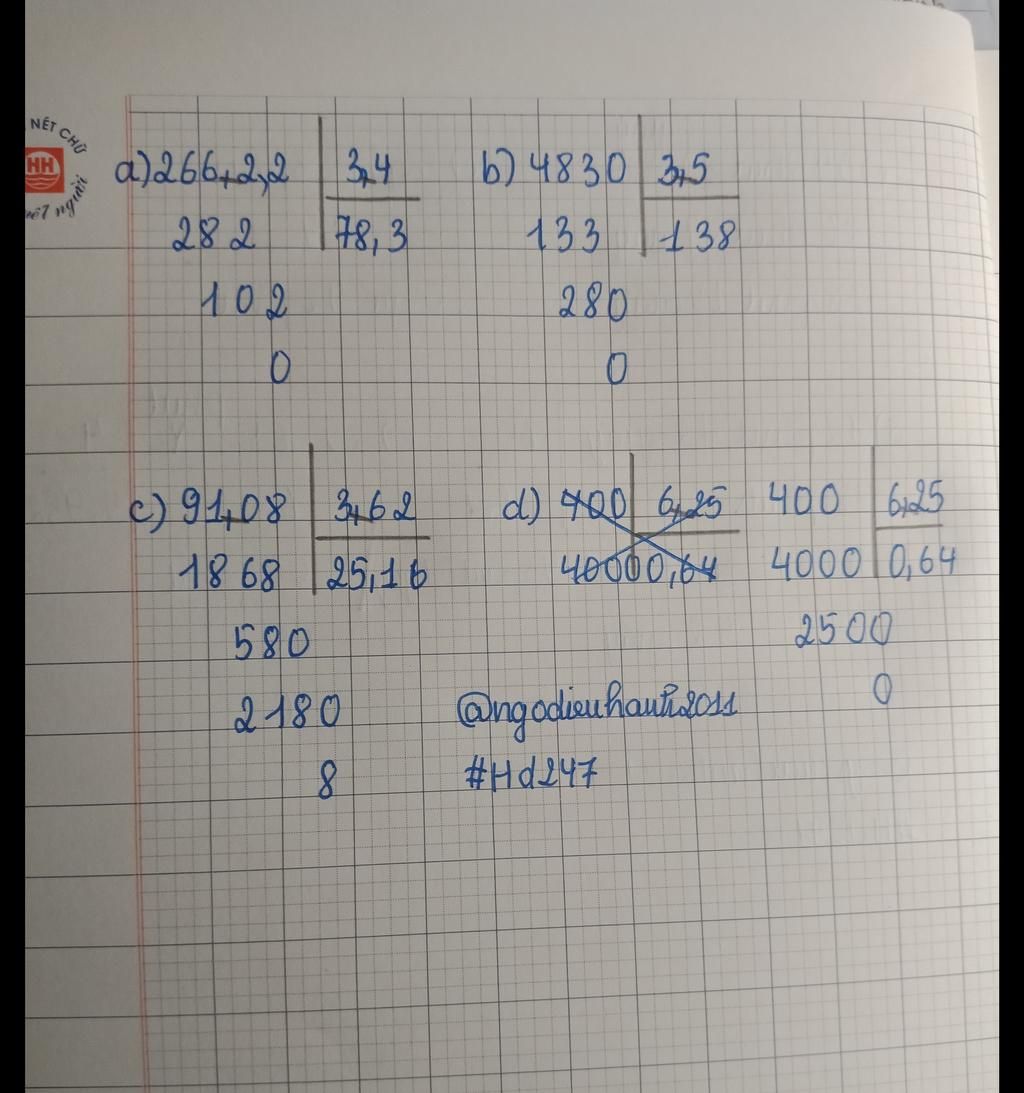 NÉT CHỮ
HH
NẾT người
a) 266,2,2 3,4
282 78,3
102
0
b) 4830 3,5
133 138
280
0
c) 91,08 3,62
1868 25,16
580
2180
8
d) 400 6,25
4000 0,64
400 6,25
4000 0,64
2500
0
#Hd247